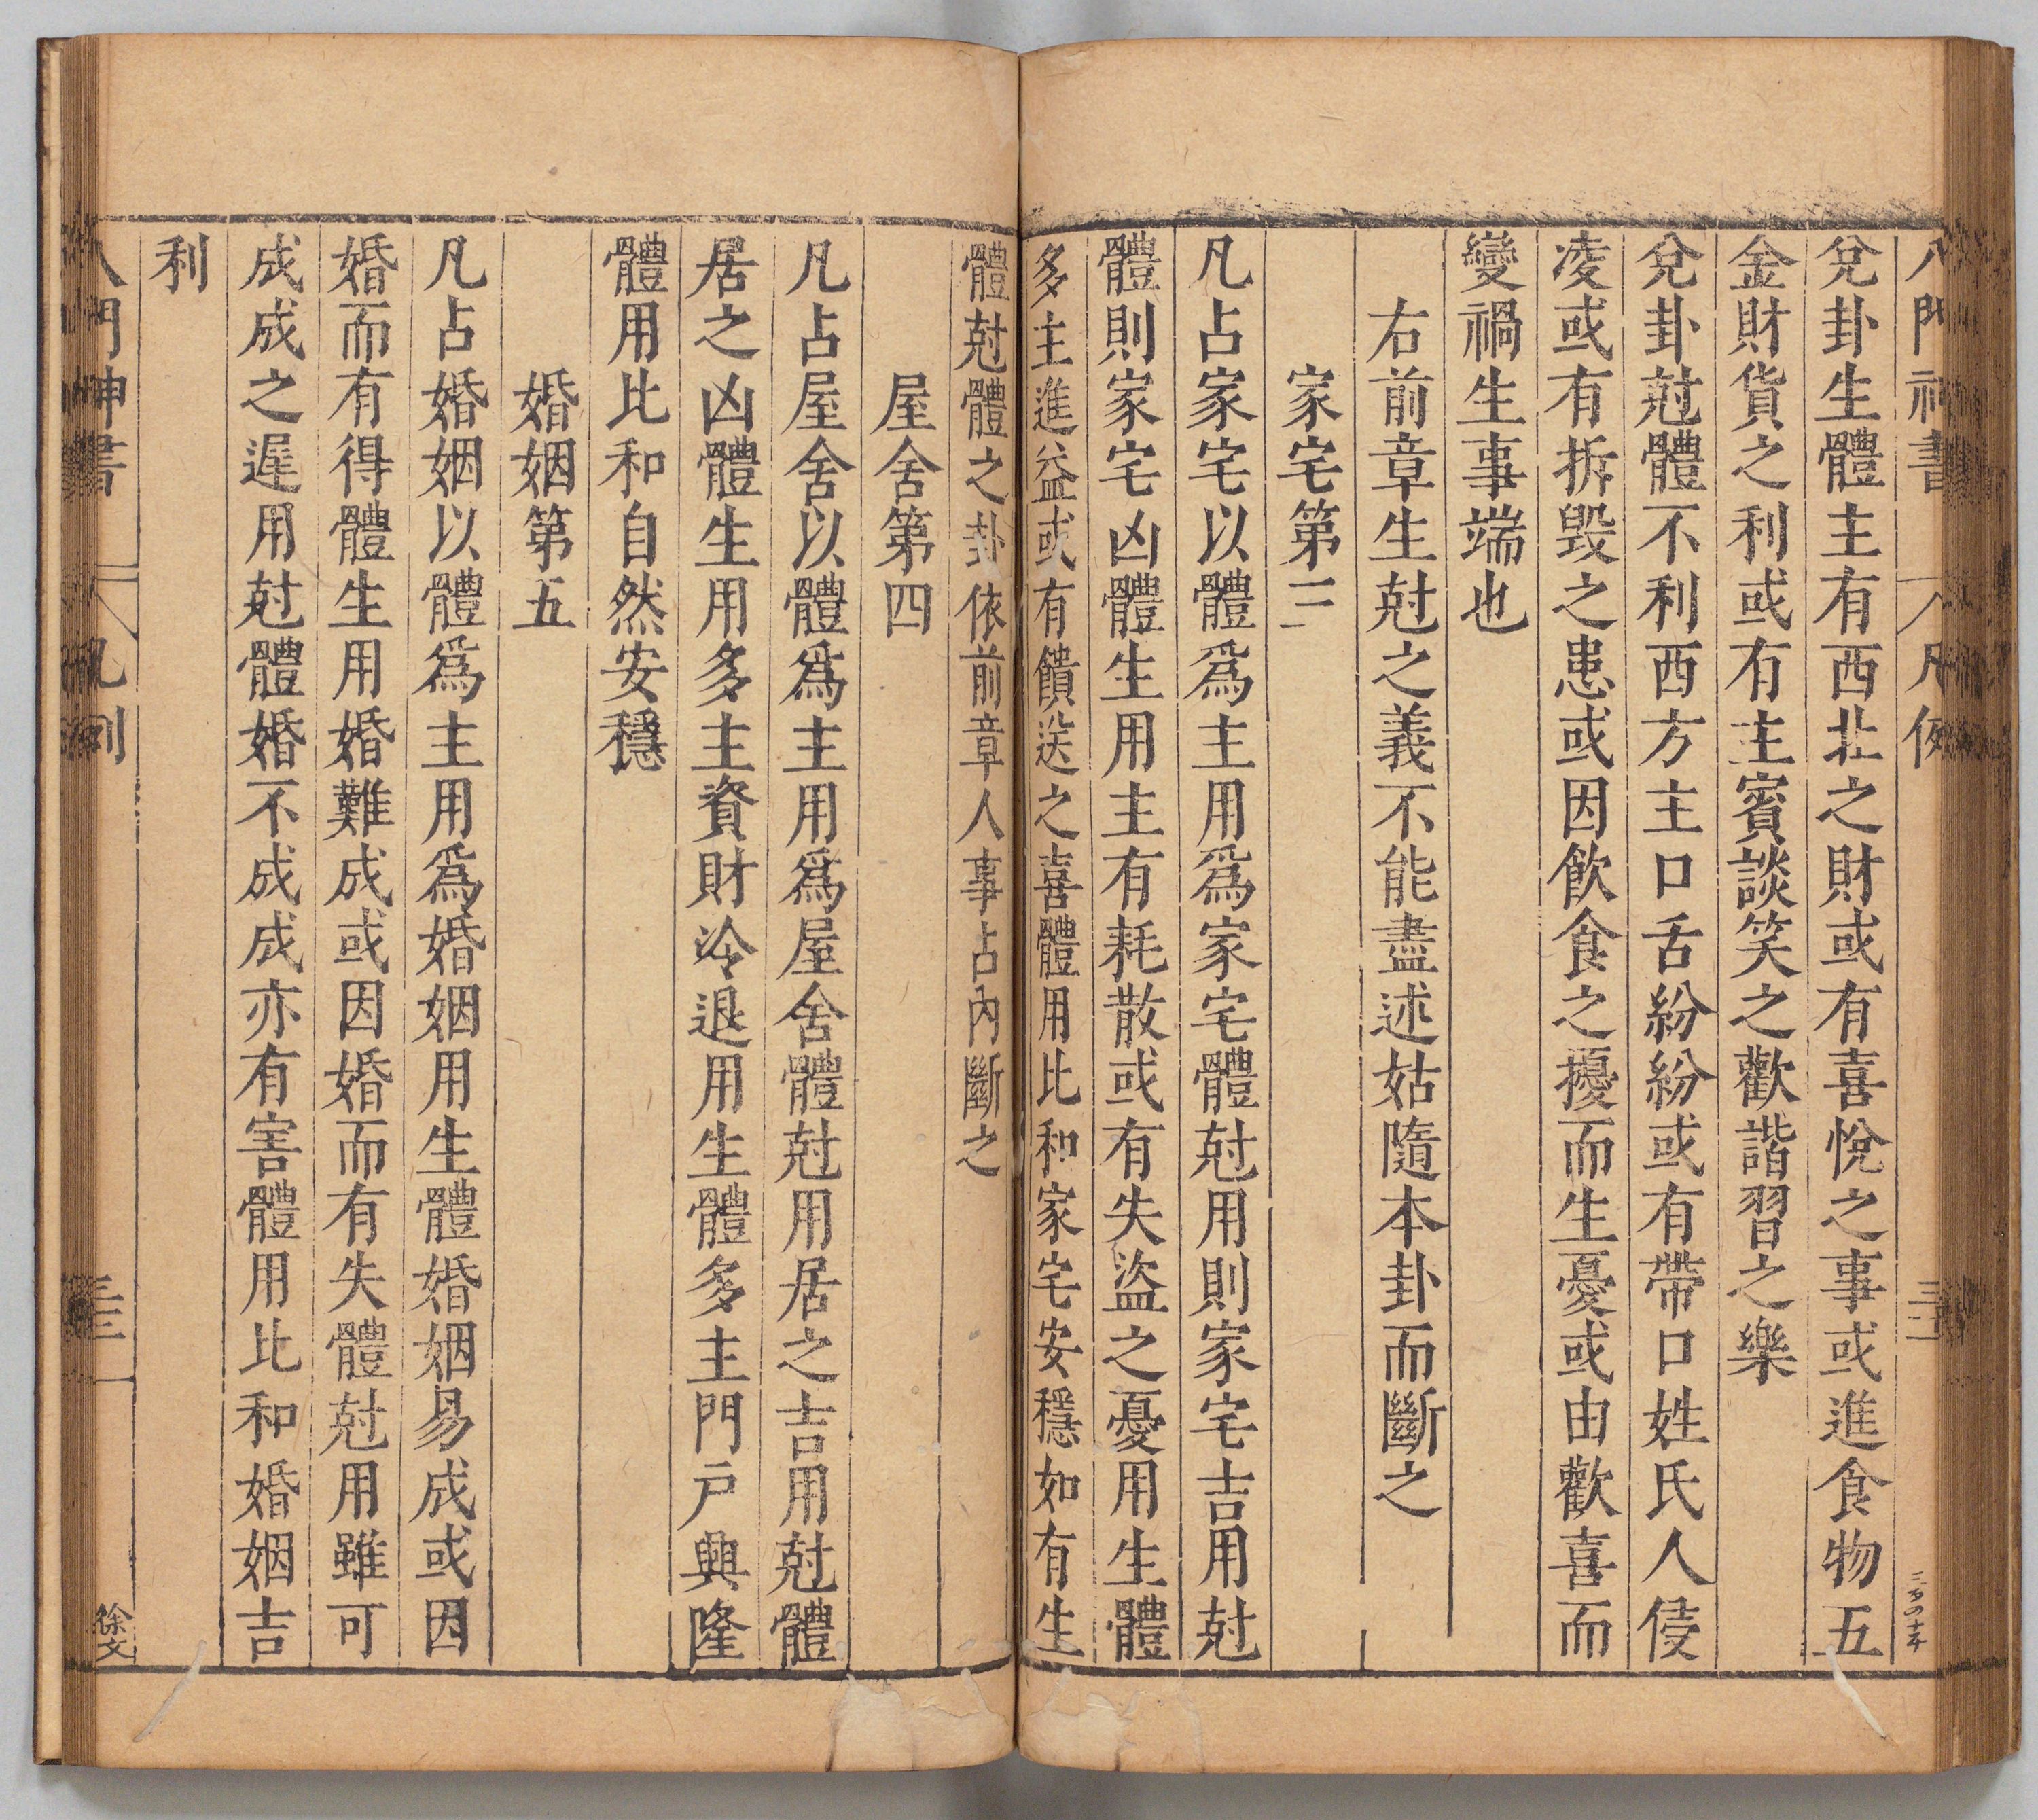 八門神書 凡例
兌卦生體主有西北之財或有喜悅之事或進食物五
金財貨之利或有主賓談笑之歡諧習之樂
兌卦尅體不利西方主口舌紛紛或有帶口姓氏人侵
凌或有拆毀之患或因飲食之擾而生憂或由歡喜而
變禍生事端也
右前章生尅之義不能盡述姑隨本卦而斷之
家宅第三
凡占家宅以體爲主用爲家宅體尅用則家宅吉用尅
體則家宅凶體生用主有耗散或有失盜之憂用生體
多主進益或有饋送之喜體用比和家宅安穩如有生
體尅體之卦依前章人事占內斷之
屋舍第四
凡占屋舍以體爲主用爲屋舍體尅用居之吉用尅體
居之凶體生用多主資財冷退用生體多主門戶興隆
體用比和自然安穩
婚姻第五
凡占婚姻以體爲主用爲婚姻用生體婚姻易成或因
婚而有得體生用婚難成或因婚而有失體尅用雖可
成成之遲用尅體婚不成成亦有害體用比和婚姻吉
利
八門神書 凡例 徐文